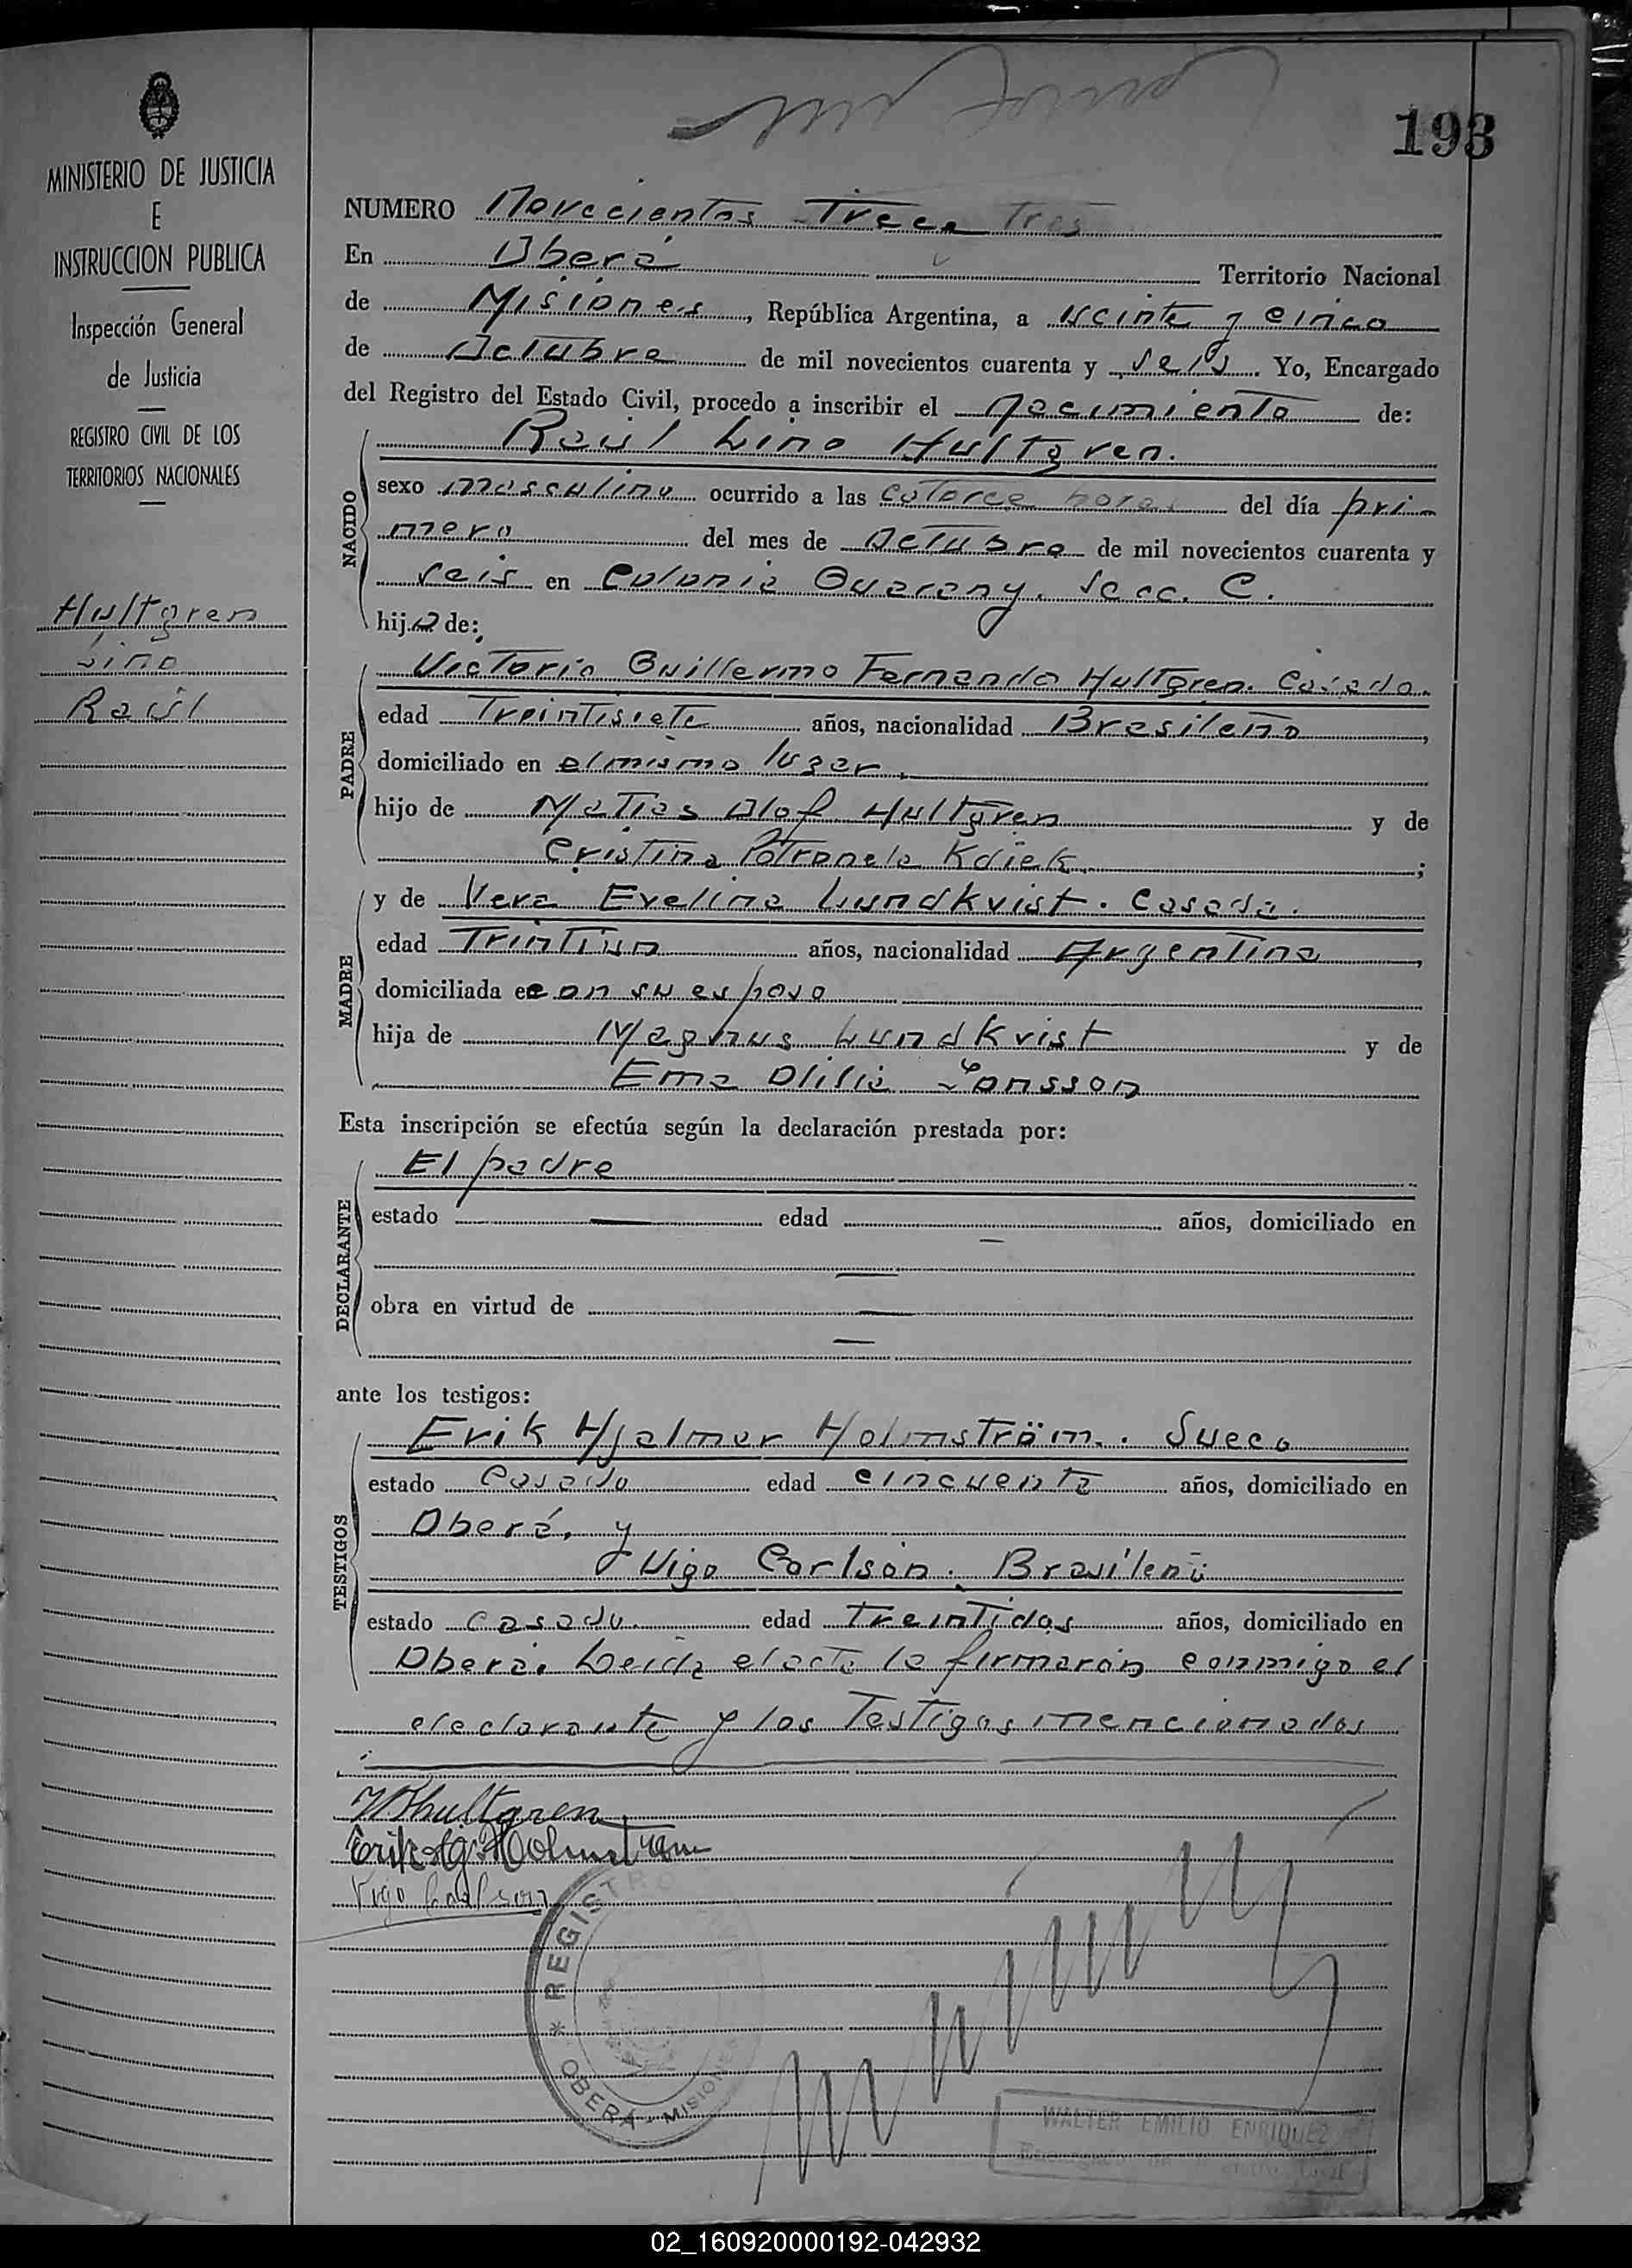 193
MINISTERIO DE JUSTICIA
E
INSTRUCCION PUBLICA
Inspección General
de Justicia
REGISTRO CIVIL DE LOS
TERRITORIOS NACIONALES
Hultgren
Lino
Raúl
NUMERO Novecientos Trece Tres
En Oberá Territorio Nacional
de Misiones, República Argentina, a Veinte y cinco
de Octubre de mil novecientos cuarenta y seis. Yo, Encargado
del Registro del Estado Civil, procedo a inscribir el Nacimiento de:
NACIDO
Raúl Lino Hultgren.
sexo masculino ocurrido a las catorce horas del día pri-
mero del mes de Octubre de mil novecientos cuarenta y
seis en Colonia Guarany. Secc. C.
hijo de:
PADRE
Victorio Guillermo Fernando Hultgren. Casado.
edad Treintisiete años, nacionalidad Brasileño,
domiciliado en el mismo lugar.
hijo de Matias Olof Hultgren y de
Cristina Potronela ;
MADRE
y de Vera Evelina Lundkvist. Casada.
edad Trintiun años, nacionalidad Argentina,
domiciliada con su esposo
hija de Magnus Lundkvist y de
Ema Olilia Jonsson
Esta inscripción se efectúa según la declaración prestada por:
DECLARANTE
El padre
estado — edad — años, domiciliado en
—
obra en virtud de —
—
ante los testigos:
TESTIGOS
Erik Hjalmar Holmström. Sueco
estado Casado edad cincuenta años, domiciliado en
Oberá, y
Vigo Carlson. Brasileño
estado casado. edad treintidos años, domiciliado en
Oberá. Leida el acta la firmaron conmigo el
declarante y los Testigos mencionados
Hultgren
Erik Hj. Holmström
Vigo Carlson
REGISTRO
* OBERÁ - MISIONES
WALTER EMILIO ENRIQUEZ
02_160920000192-042932